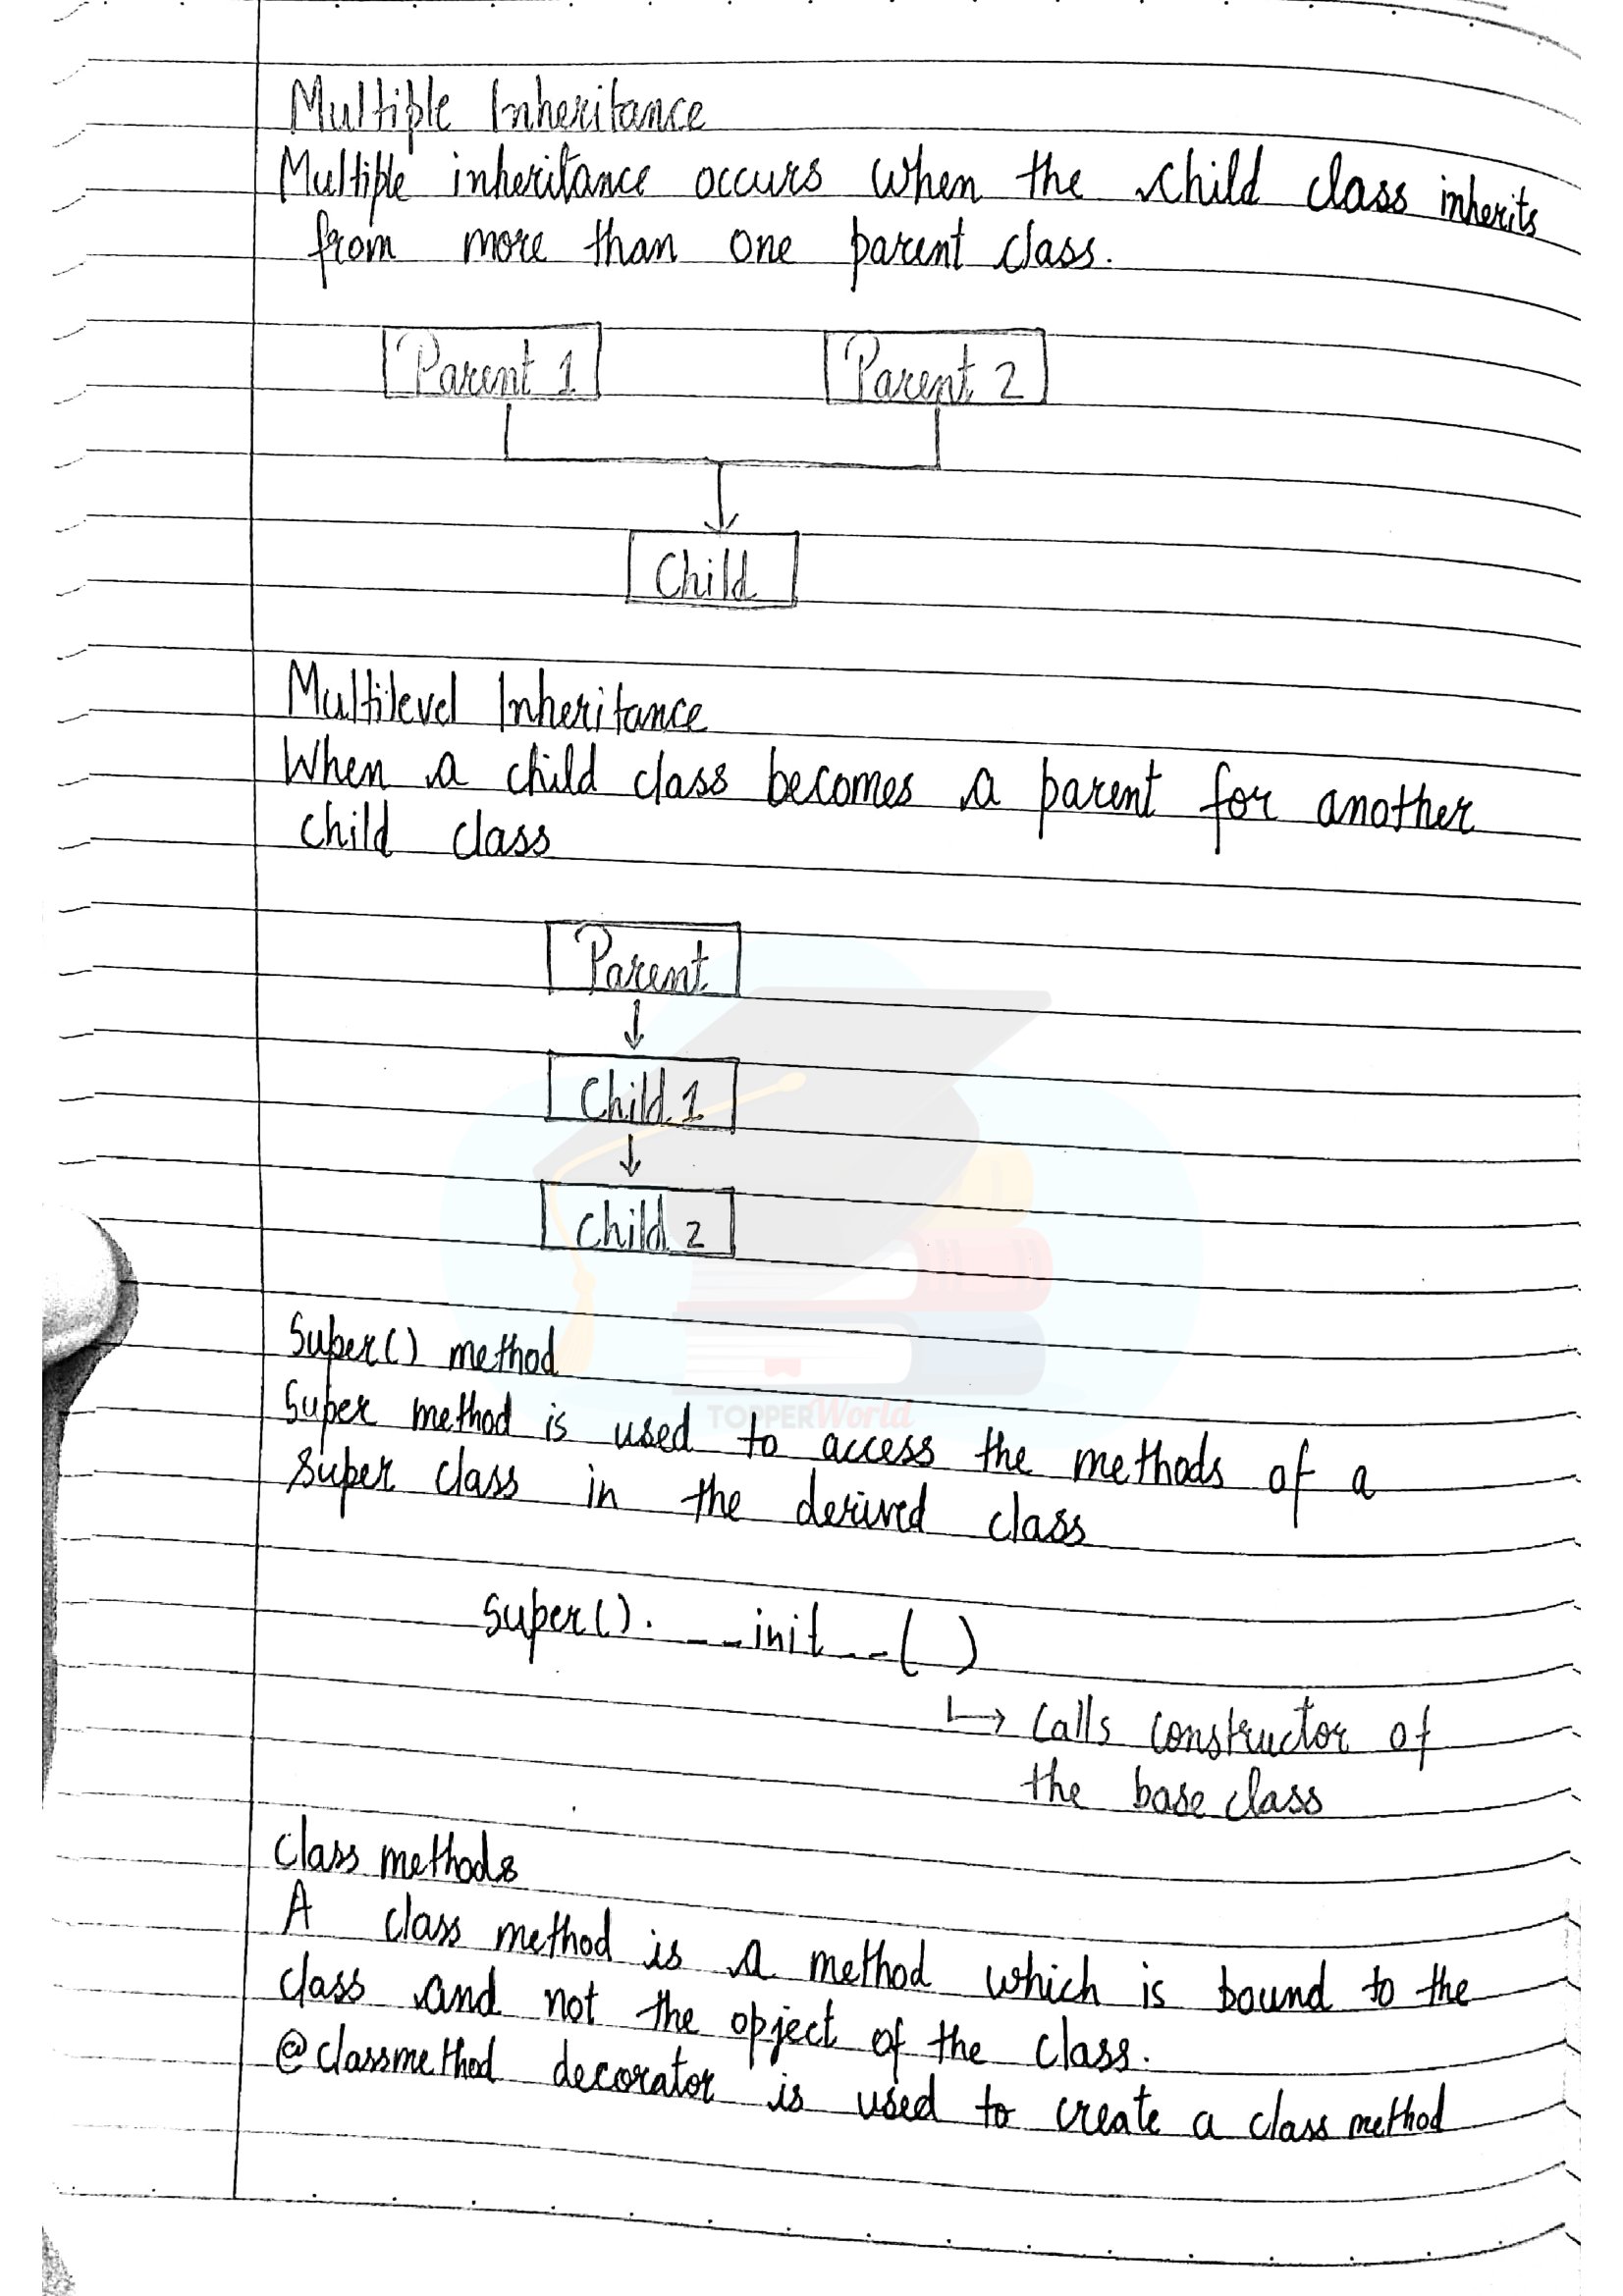 Multiple Inheritance
Multiple inheritance occurs when the child class inherits
from more than one parent class.
Parent 1 Parent 2
Child
Multilevel Inheritance
When a child class becomes a parent for another
child class
Parent
Child 1
Child 2
Super() method
Super method is used to access the methods of a
super class in the derived class
TOPPERWorld
super(). __init__( )
↳ Calls constructor of
the base class
Class methods
A class method is a method which is bound to the
class and not the opject of the class.
@classmethod decorator is used to create a class method